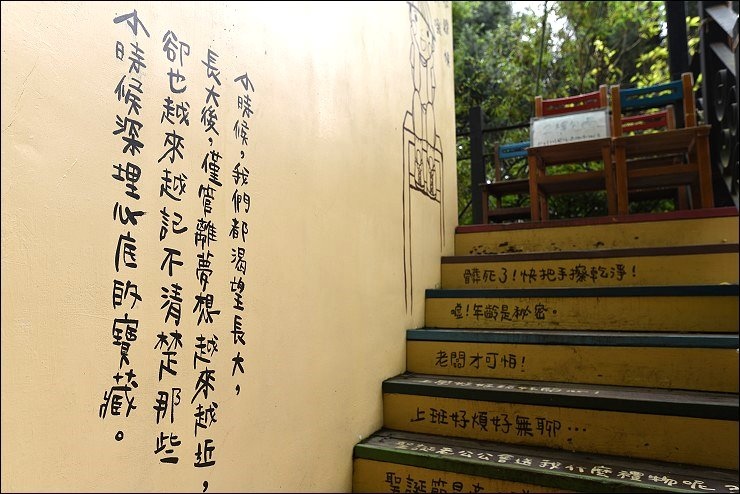 小時候，我們都渴望長大，
長大後，僅管離夢想越來越近，
卻也越來越記不清楚那些
小時候深埋心底的寶藏。
髒死了！快把手擦乾淨！
噓！年齡是祕密。
老闆才可怕！
上班好煩好無聊…
聖誕老公公會送我什麼禮物呢？
聖誕節是